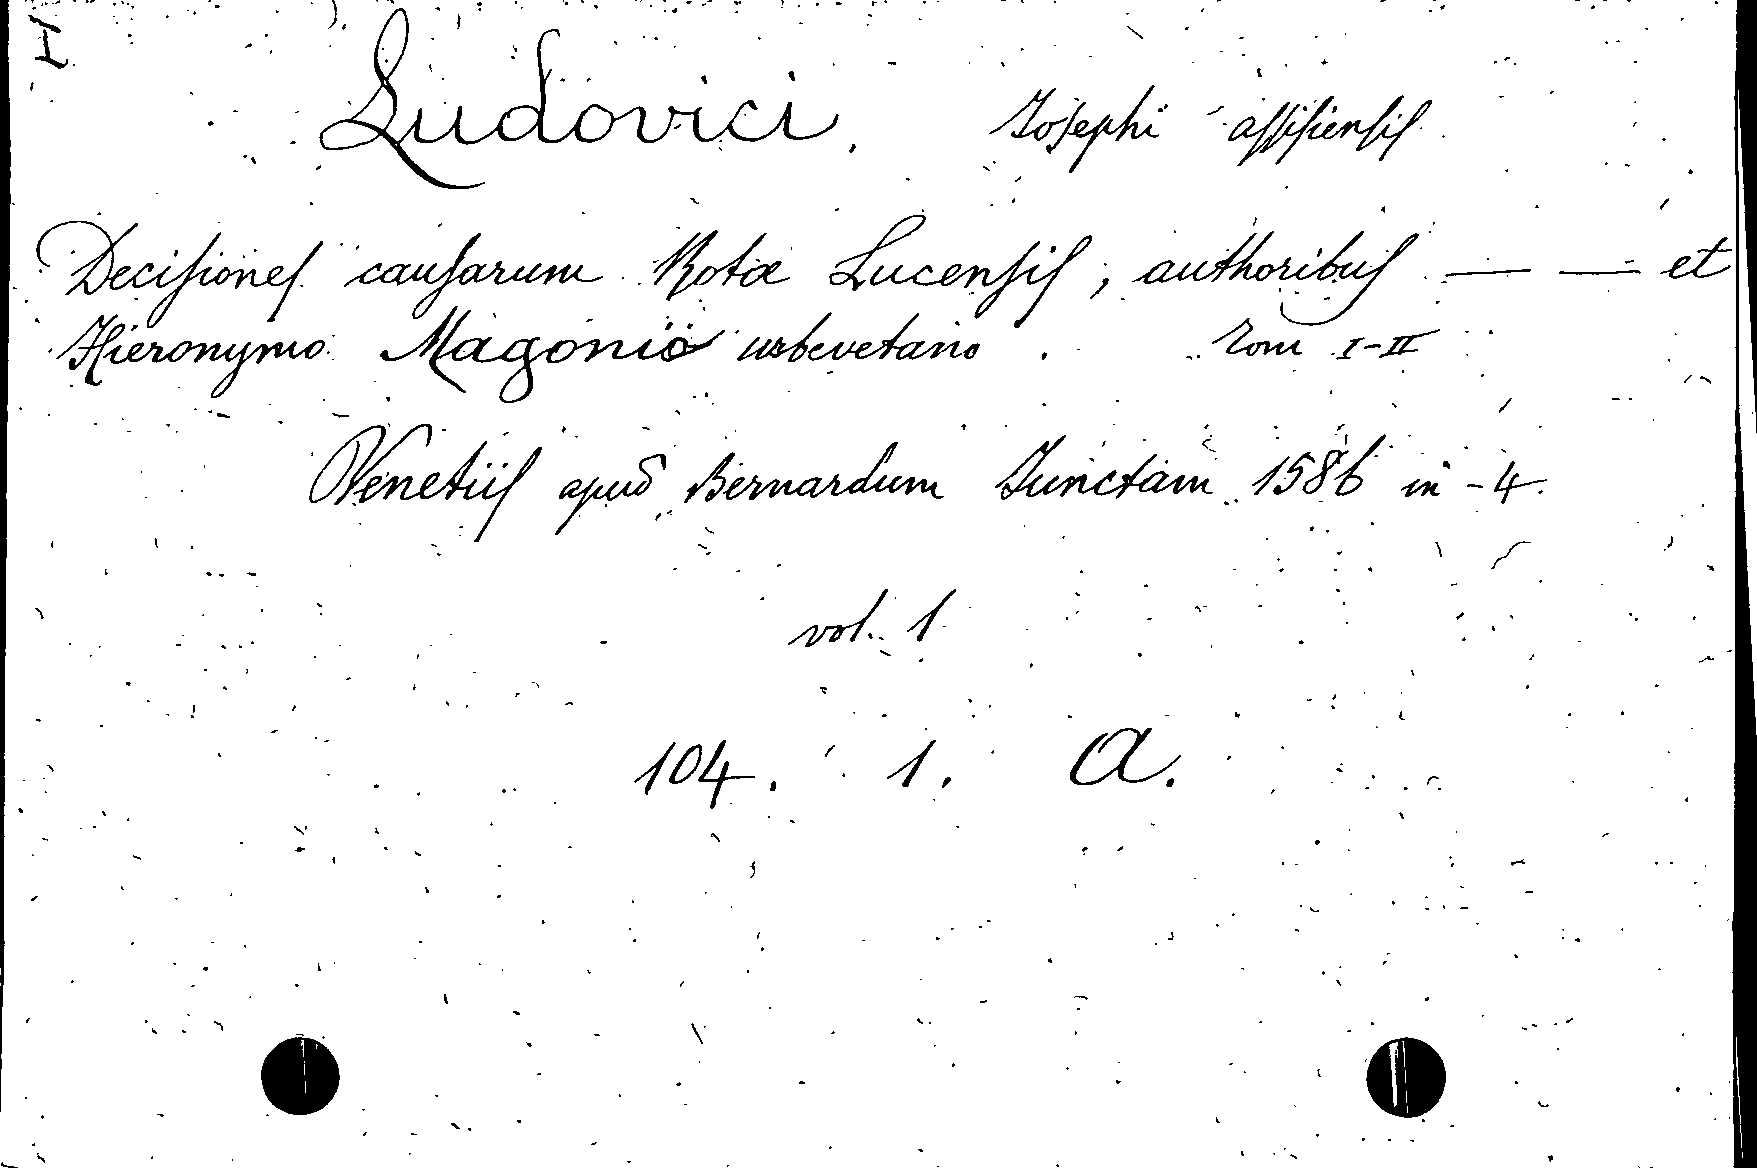 Ludovici, Josephi assisiensis
Decisiones causarum Rotæ Lucensis, authoribus — — et
Hieronymo Magonio urbevetano. Tom I-II
Venetiis apud Bernardum Junctam 1586 in-4.
vol. 1
104. 1. A.